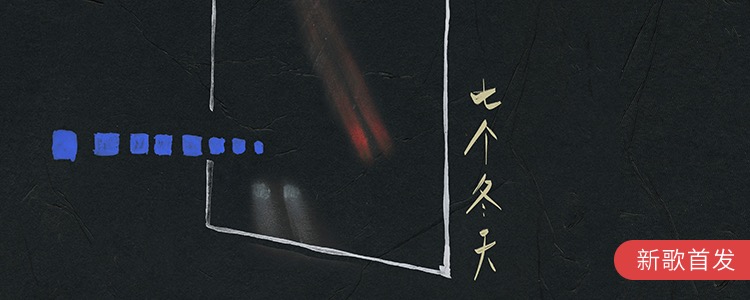 七个冬天
新歌首发